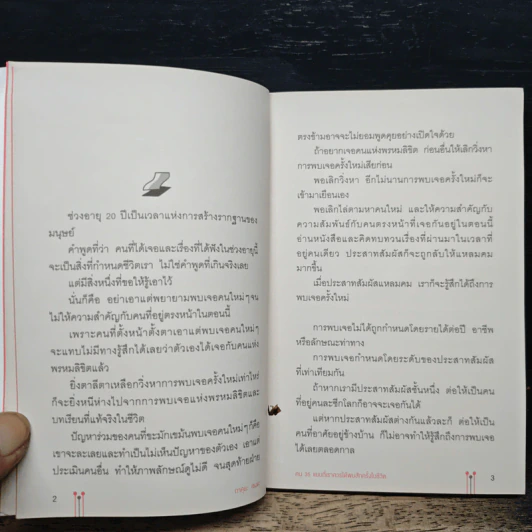 ช่วงอายุ 20 ปีเป็นเวลาแห่งการสร้างรากฐานของ
มนุษย์
คำพูดที่ว่า คนที่ได้เจอและเรื่องที่ได้ฟังในช่วงอายุนี้
จะเป็นสิ่งที่กำหนดชีวิตเรา ไม่ใช่คำพูดที่เกินจริงเลย
แต่มีสิ่งหนึ่งที่ขอให้รู้เอาไว้
นั่นก็คือ อย่าเอาแต่พยายามพบเจอคนใหม่ๆ จน
ไม่ให้ความสำคัญกับคนที่อยู่ตรงหน้าในตอนนี้
เพราะคนที่ตั้งหน้าตั้งตาเอาแต่พบเจอคนใหม่ๆ
จะแทบไม่มีทางรู้สึกได้เลยว่าตัวเองได้เจอกับคนแห่ง
พรหมลิขิตแล้ว
ยิ่งตาลีตาเหลือกวิ่งหาการพบเจอครั้งใหม่เท่าไหร่
ก็จะยิ่งหนีห่างไปจากการพบเจอแห่งพรหมลิขิตและ
บทเรียนที่แท้จริงในชีวิต
ปัญหาร่วมของคนที่ชะมักเขม้นพบเจอคนใหม่ๆ ก็คือ
เขาจะละเลยและทำเป็นไม่เห็นปัญหาของตัวเอง เอาแต่
ประเมินคนอื่น ทำให้ภาพลักษณ์ดูไม่ดี จนสุดท้ายฝ่าย
2
ตรงข้ามอาจจะไม่ยอมพูดคุยอย่างเปิดใจด้วย
ถ้าอยากเจอคนแห่งพรหมลิขิต ก่อนอื่นให้เลิกวิ่งหา
การพบเจอครั้งใหม่เสียก่อน
พอเลิกวิ่งหา อีกไม่นานการพบเจอครั้งใหม่ก็จะ
เข้ามาเยือนเอง
พอเลิกไล่ตามหาคนใหม่ และให้ความสำคัญกับ
ความสัมพันธ์กับคนตรงหน้าที่เจอกันอยู่ในตอนนี้
อ่านหนังสือและคิดทบทวนเรื่องที่ผ่านมาในเวลาที่
อยู่คนเดียว ประสาทสัมผัสก็จะถูกลับให้แหลมคม
มากขึ้น
เมื่อประสาทสัมผัสแหลมคม เราก็จะรู้สึกได้ถึงการ
พบเจอครั้งใหม่
การพบเจอไม่ได้ถูกกำหนดโดยรายได้ต่อปี อาชีพ
หรือลักษณะท่าทาง
การพบเจอกำหนดโดยระดับของประสาทสัมผัส
ที่เท่าเทียมกัน
ถ้าหากเรามีประสาทสัมผัสชั้นหนึ่ง ต่อให้เป็นคนที่
อยู่คนละซีกโลกก็อาจจะเจอกันได้
แต่หากประสาทสัมผัสต่างกันแล้วละก็ ต่อให้เป็น
คนที่อาศัยอยู่ข้างบ้าน ก็ไม่อาจทำให้รู้สึกถึงการพบเจอ
ได้เลยตลอดกาล
3